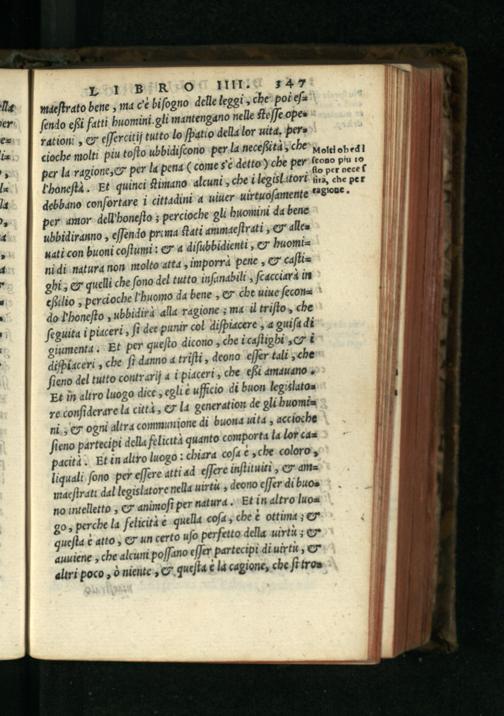 LIBRO IIII. 347
maestrato bene, ma c'è bisogno delle leggi, che poi es=
sendo eßi fatti huomini gli mantengano nelle stesse ope=
rationi, & essercitij tutto lo spatio della lor uita, per=
cioche molti piu tosto ubbidiscono per la necessità, che
per la ragione, & per la pena (come s'è detto) che per
l'honestà. Et quinci stimano alcuni, che i legislatori
debbano confortare i cittadini a uiuer uirtuosamente
per amor dell'honesto; percioche gli huomini da bene
ubbidiranno, essendo prima stati ammaestrati, & alle=
uati con buoni costumi: & a disubbidienti, & huomi=
ni di natura non molto atta, imporrà pene, & casti=
ghi, & quelli che sono del tutto insanabili, scacciarà in
eßilio, percioche l'huomo da bene, & che uiue secon=
do l'honesto, ubbidirà alla ragione; ma il tristo, che
seguita i piaceri, si dee punir col dispiacere, a guisa di
giumenta. Et per questo dicono, che i castighi, & i
dispiaceri, che si danno a tristi, deono esser tali, che
sieno del tutto contrarij a i piaceri, che eßi amauano.
Et in altro luogo dice, egli è ufficio di buon legislato=
re considerare la città, & la generation de gli huomi=
ni, & ogni altra communione di buona uita, accioche
sieno partecipi della felicità quanto comporta la lor ca=
pacità. Et in altro luogo: chiara cosa è, che coloro,
liquali sono per essere atti ad essere instituiti, & am=
maestrati dal legislatore nella uirtù, deono esser di buo=
no intelletto, & animosi per natura. Et in altro luo=
go, perche la felicità è quella cosa, che è ottima; &
questa è atto, & un certo uso perfetto della uirtù; &
auuiene, che alcuni possano esser partecipi di uirtù, &
altri poco, ò niente, & questa è la cagione, che si tro=
Molti obedi
scono piu to
sto per neces
sità, che per
ragione.